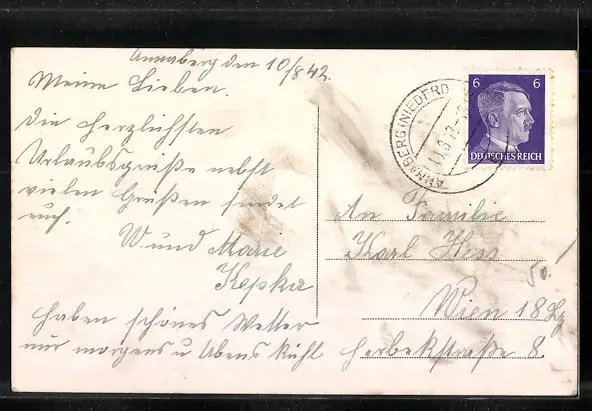 Annaberg den 10/8 42.
Meine Lieben.
Die herzlichsten
Urlaubsgrüße nebst
vielen Grüßen sendet
euch.
W. und Marie
Kepka
haben schönes Wetter
nur morgens u Abens kühl
ANNABERG (NIEDERD
11.8.42
6 6
DEUTSCHES REICH
An Familie
Karl Hess
50.
Wien 18
Herbekstraße 8.